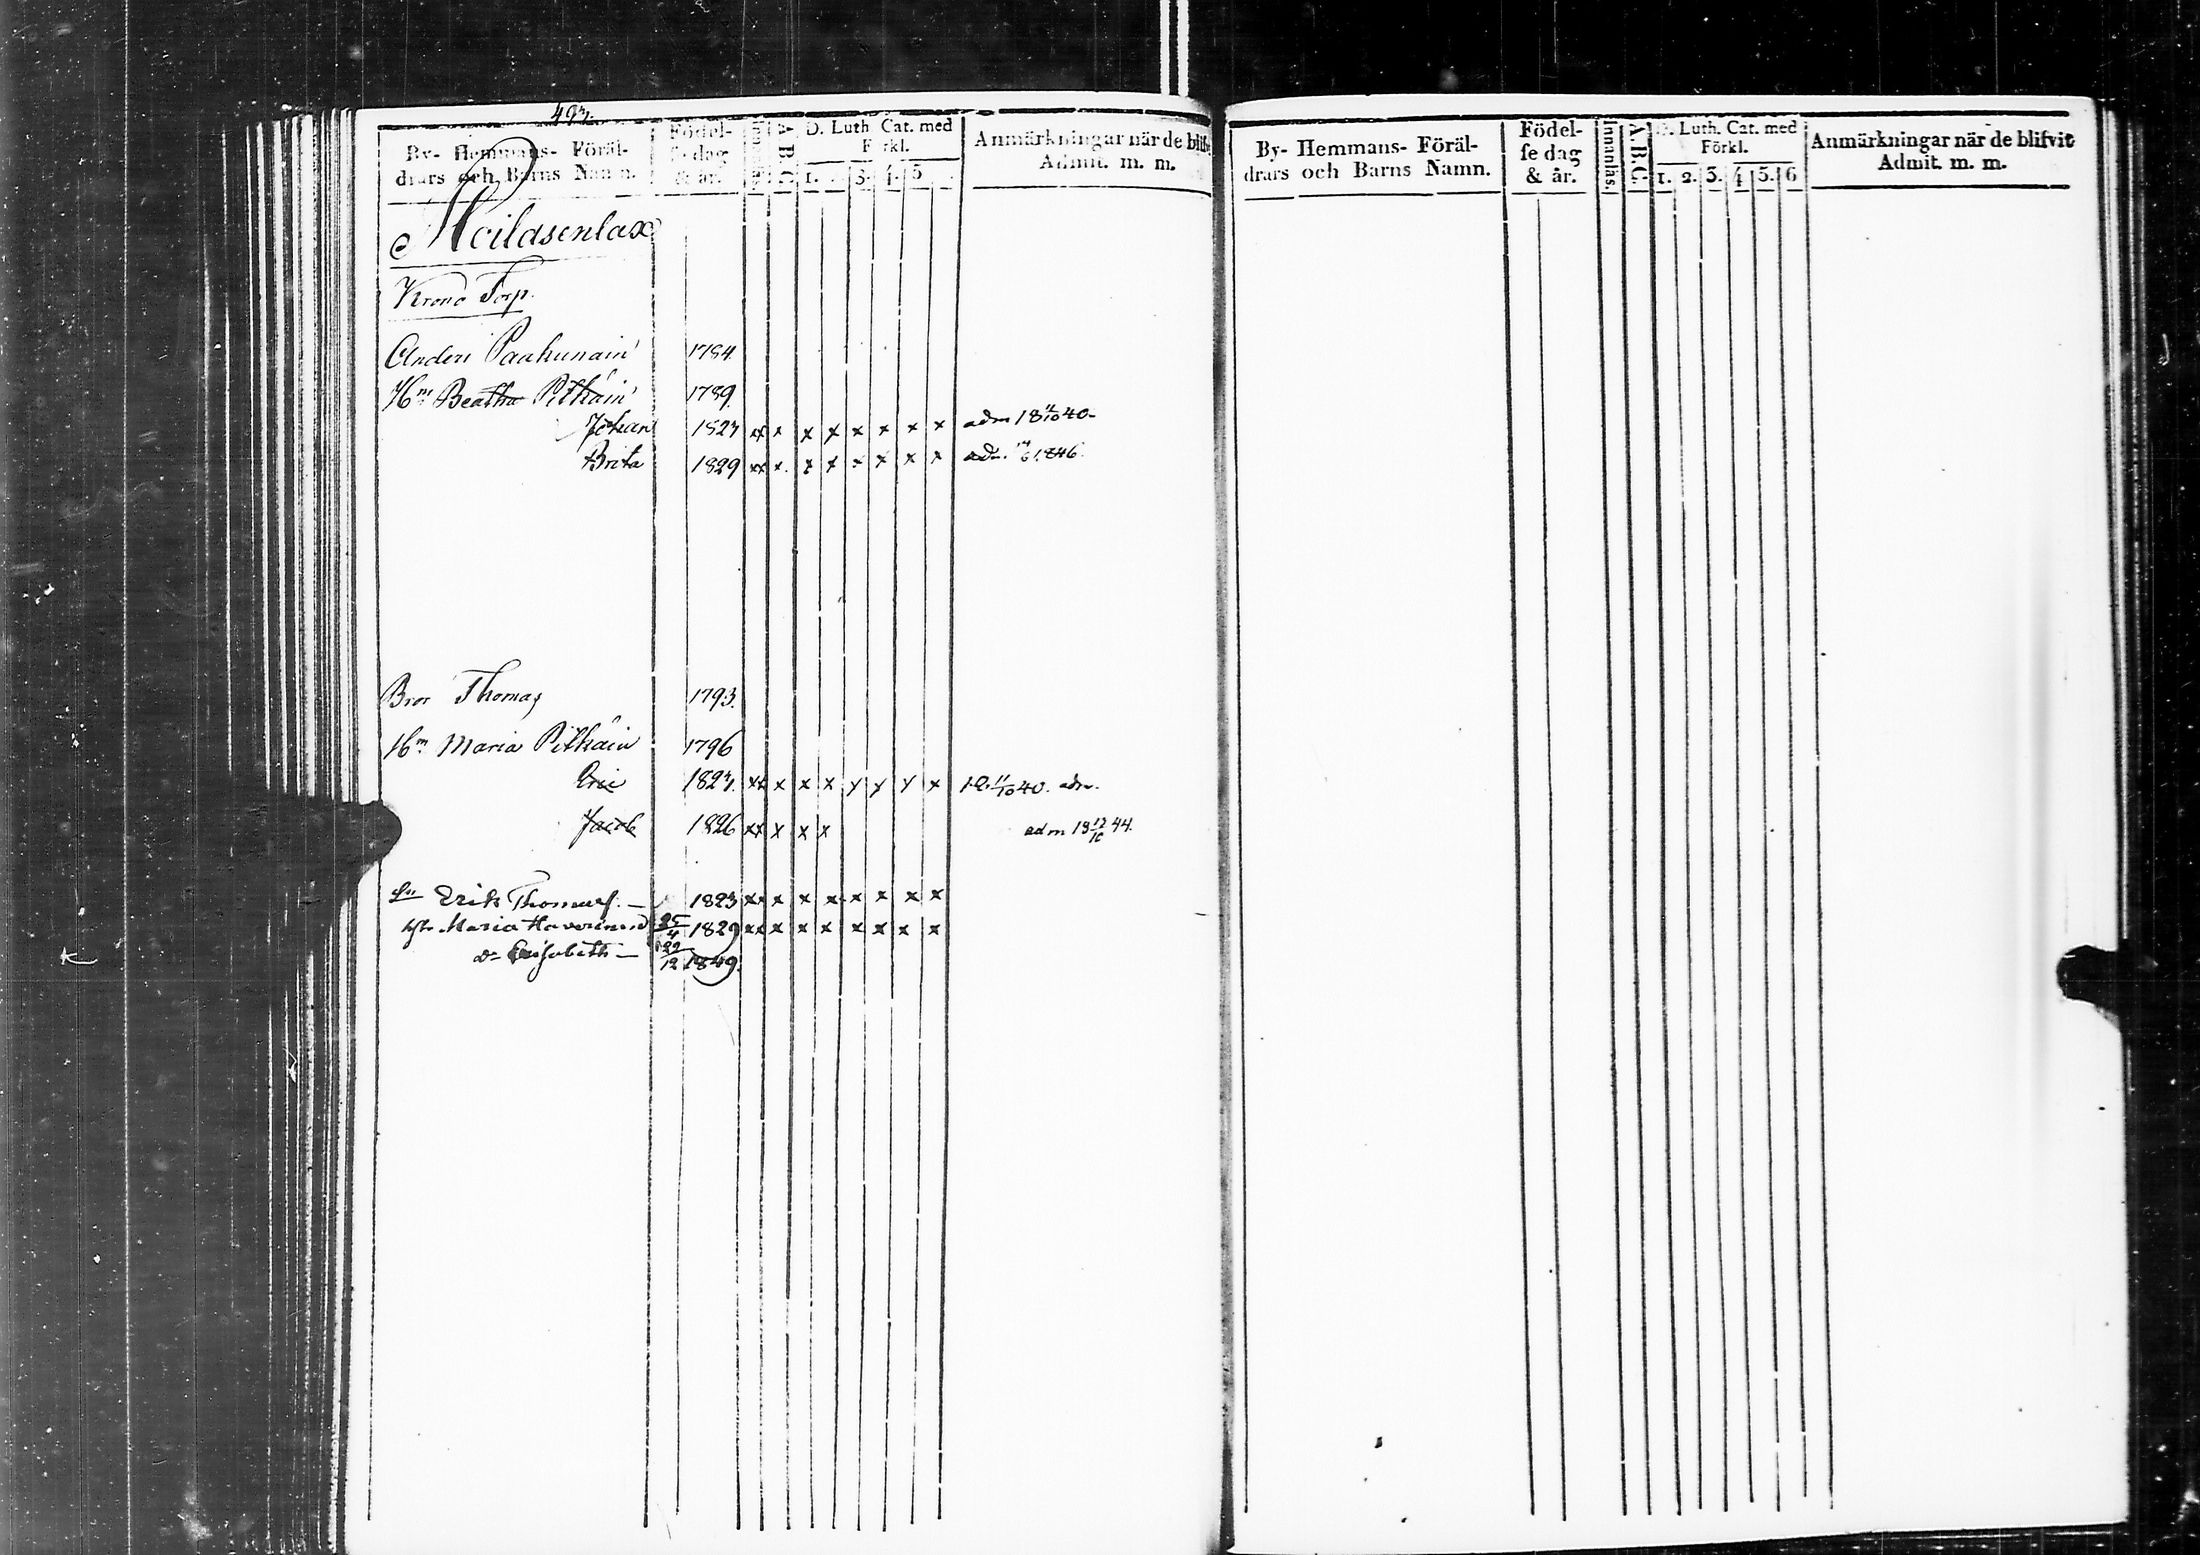 By- Hemmans- Föräl-
drars och Barns Namn.
Födel-
se dag
& år.
A.B.C.
D. Luth. Cat. med
Förkl.
1. 3. 4. 5
Anmärkningar när de blifv
Admit. m. m.
Moilasenlax
Krono Torp.
Anders Paakunain 1784.
Hm Beatha Pitkäin 1789.
Johan 1823 xx x x x x x x x adm 18 11/10 40-
Brita 1829 xx x. x x x x x x 1846.
Bror Thomas 1793.
Hm Maria Pitkäin 1796
Eric 1823. xx x x x y y y x 18 11/10 40. adm.
Jacob 1826 xx x x x adm 18 12/10 44.
Erik Thomasf. — 1823 xx x x x x x x x
Maria Haverinen 25/4 1829 xx x x x x x x x
Elisabeth — 22/12 1849.
By- Hemmans- Föräl-
drars och Barns Namn.
Födel-
se dag
& år.
Innanläs.
A.B.C.
D. Luth. Cat. med
Förkl.
1. 2. 3. 4 5. 6
Anmärkningar när de blifvit
Admit. m. m.